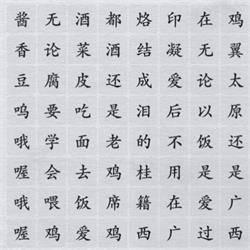 酱 无 酒 都 烙 印 在 鸡
香 论 菜 酒 结 凝 无 翼
豆 腐 皮 还 成 爱 论 太
呜 要 吃 是 泪 后 以 原
哦 学 面 老 的 不 饭 还
喔 会 去 鸡 桂 用 是 是
哦 喂 饭 席 籍 在 爱 广
喔 爱 鸡 爱 鸡 西 广 过 西